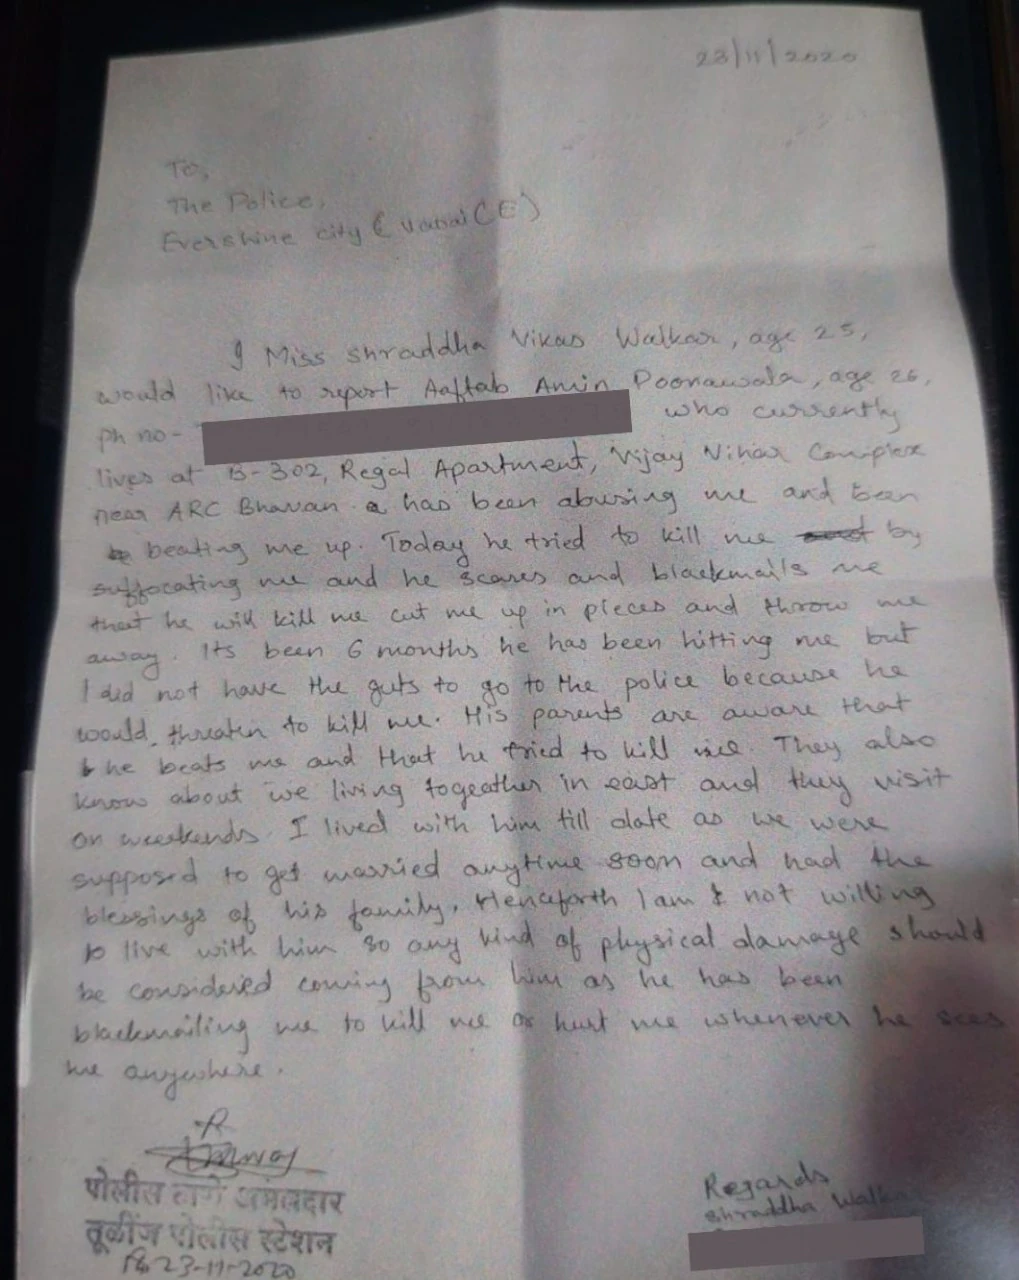 23/11/2020
To,
The Police,
Evershine city ( Vasai (E)
I Miss Shraddha Vikas Walkar, age 25,
would like to report Aaftab Amin Poonawala, age 26,
Ph no- who currently
lives at B-302, Regal Apartment, Vijay Vihar Complex
near ARC Bhavan has been abusing me and been
beating me up. Today he tried to kill me by
suffocating me and he scares and blackmails me
that he will kill me cut me up in pieces and throw me
away. Its been 6 months he has been hitting me but
I did not have the guts to go to the police because he
would threaten to kill me. His parents are aware that
he beats me and that he tried to kill me. They also
know about we living togeather in east and they visit
on weekends. I lived with him till date as we were
supposed to get married anytime soon and had the
blessings of his family. Henceforth I am not willing
to live with him so any kind of physical damage should
be considered coming from him as he has been
blackmailing me to kill me or hurt me whenever he sees
me anywhere.
पोलीस ठाणे अंमलदार
तूळींज पोलीस स्टेशन
23-11-2020
Regards
Shraddha Walkar